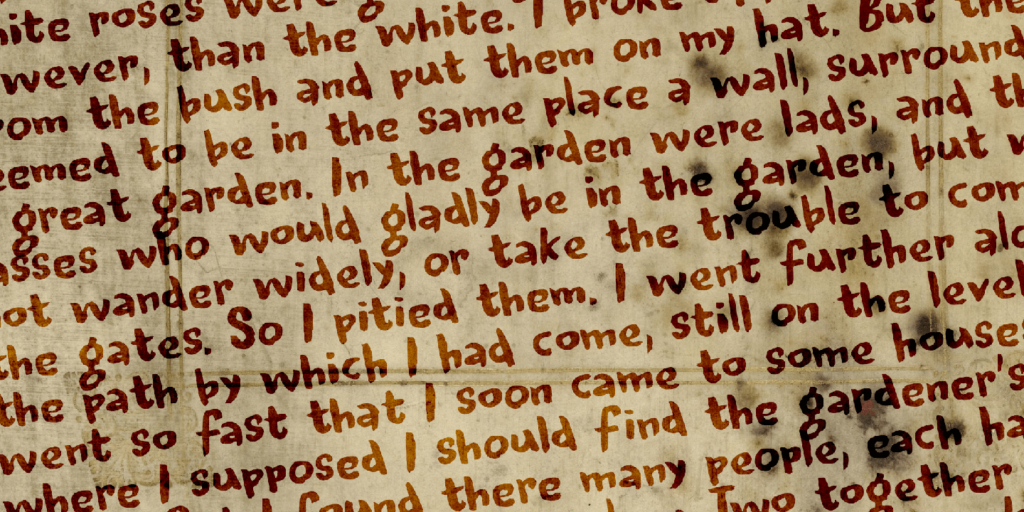 white roses were
however, than the white. I broke
from the bush and put them on my hat. But the
seemed to be in the same place a wall, surround
great garden. In the garden were lads, and th
lasses who would gladly be in the garden, but w
not wander widely, or take the trouble to com
the gates. So I pitied them. I went further alo
the path by which I had come, still on the level
went so fast that I soon came to some houses
where I supposed I should find the gardener's
found there many people, each ha
Two together